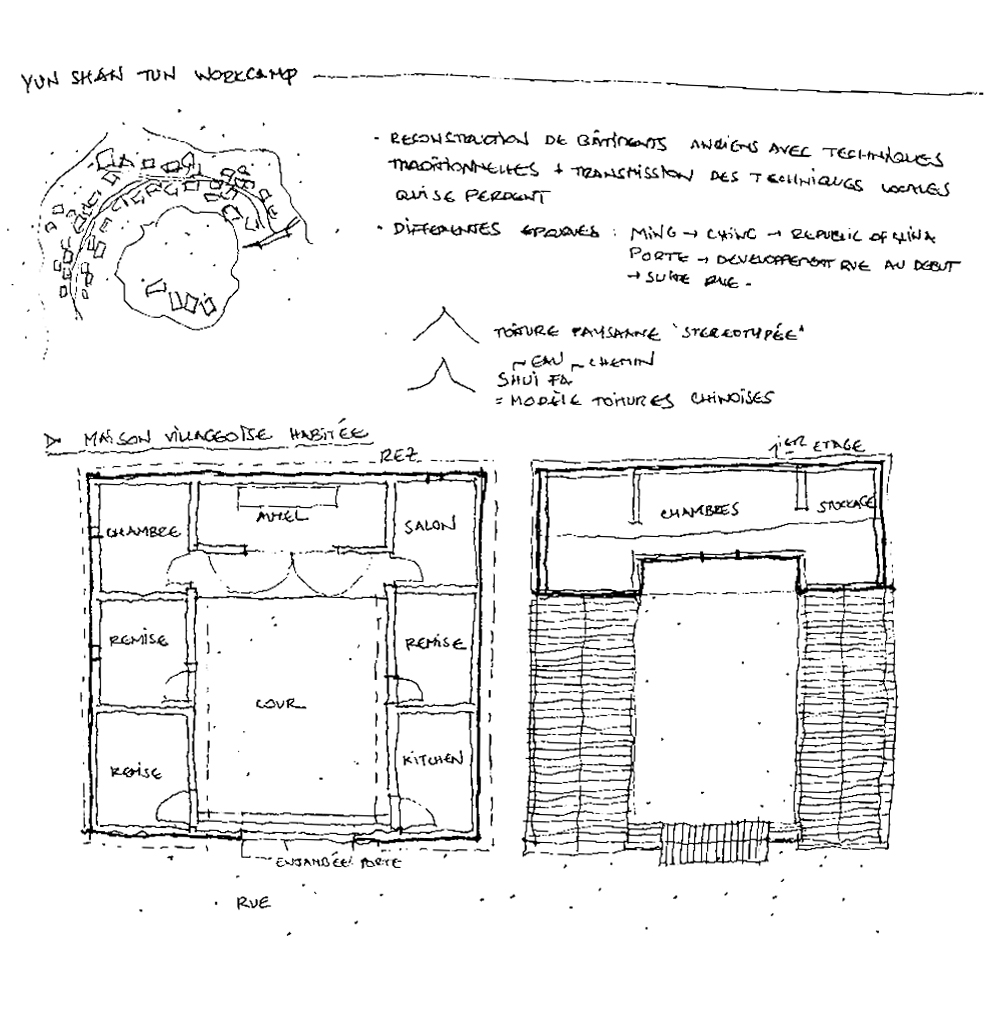 YUN SHAN TUN WORKCAMP
- RECONSTRUCTION DE BÂTIMENTS ANCIENS AVEC TECHNIQUES
TRADITIONNELLES + TRANSMISSION DES TECHNIQUES LOCALES
QUI SE PERDENT
- DIFFERENTES EPOQUES : MING → CHING → REPUBLIC OF CHINA
PORTE → DEVELOPPEMENT RUE AU DEBUT
→ SUITE RUE -
TOITURE PAYSANNE "STEREOTYPÉE"
~ EAU ~ CHEMIN
SHUI FA
= MODÈLE TOITURES CHINOISES
▷ MAISON VILLAGEOISE HABITÉE
REZ
1IER ETAGE
CHAMBRE
AUTEL
SALON
CHAMBRES
STOCKAGE
REMISE
REMISE
COUR
REMISE
KITCHEN
ENJAMBÉE PORTE
RUE